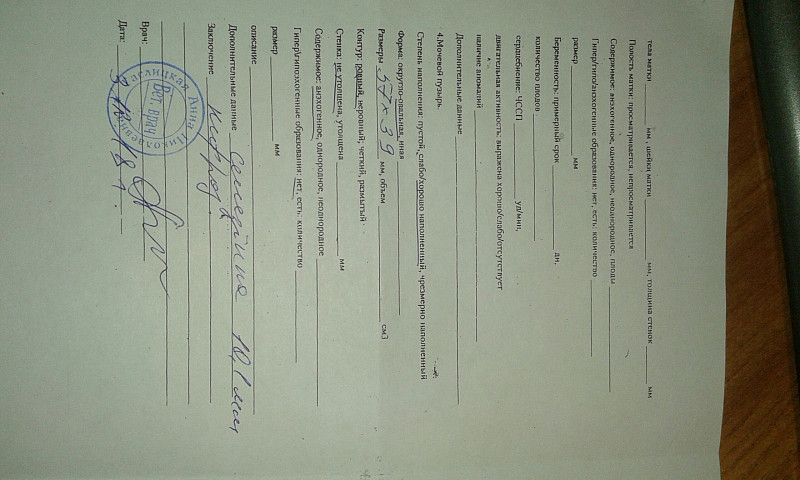 тела матки ______ мм, шейки матки ______ мм, толщина стенок ______ мм
Полость матки: просматривается, непросматривается
Содержимое: анэхогенное, однородное, неоднородное, плоды
Гипер/гипо/анэхогенные образования: нет, есть: количество
размер ______ мм
Беременность: примерный срок ______ дн.
количество плодов
сердцебиение: ЧССП ______ уд/мин,
двигательная активность: выражена хорошо/слабо/отсутствует
наличие аномалий
Дополнительные данные
4.Мочевой пузырь.
Степень наполнения: пустой, слабо/хорошо наполненный, чрезмерно наполненный
Форма: округло-овальная, иная
Размеры 57x39 мм, объем ______ см3
Контур: ровный, неровный; четкий, размытый
Стенка: не утолщена, утолщена ______ мм
Содержимое: анэхогенное, однородное, неоднородное
Гипер/гипоэхогенные образования: нет, есть: количество
размер ______ мм
описание
Дополнительные данные
Заключение
Врач:
Вет. врач
Анна
Дата: